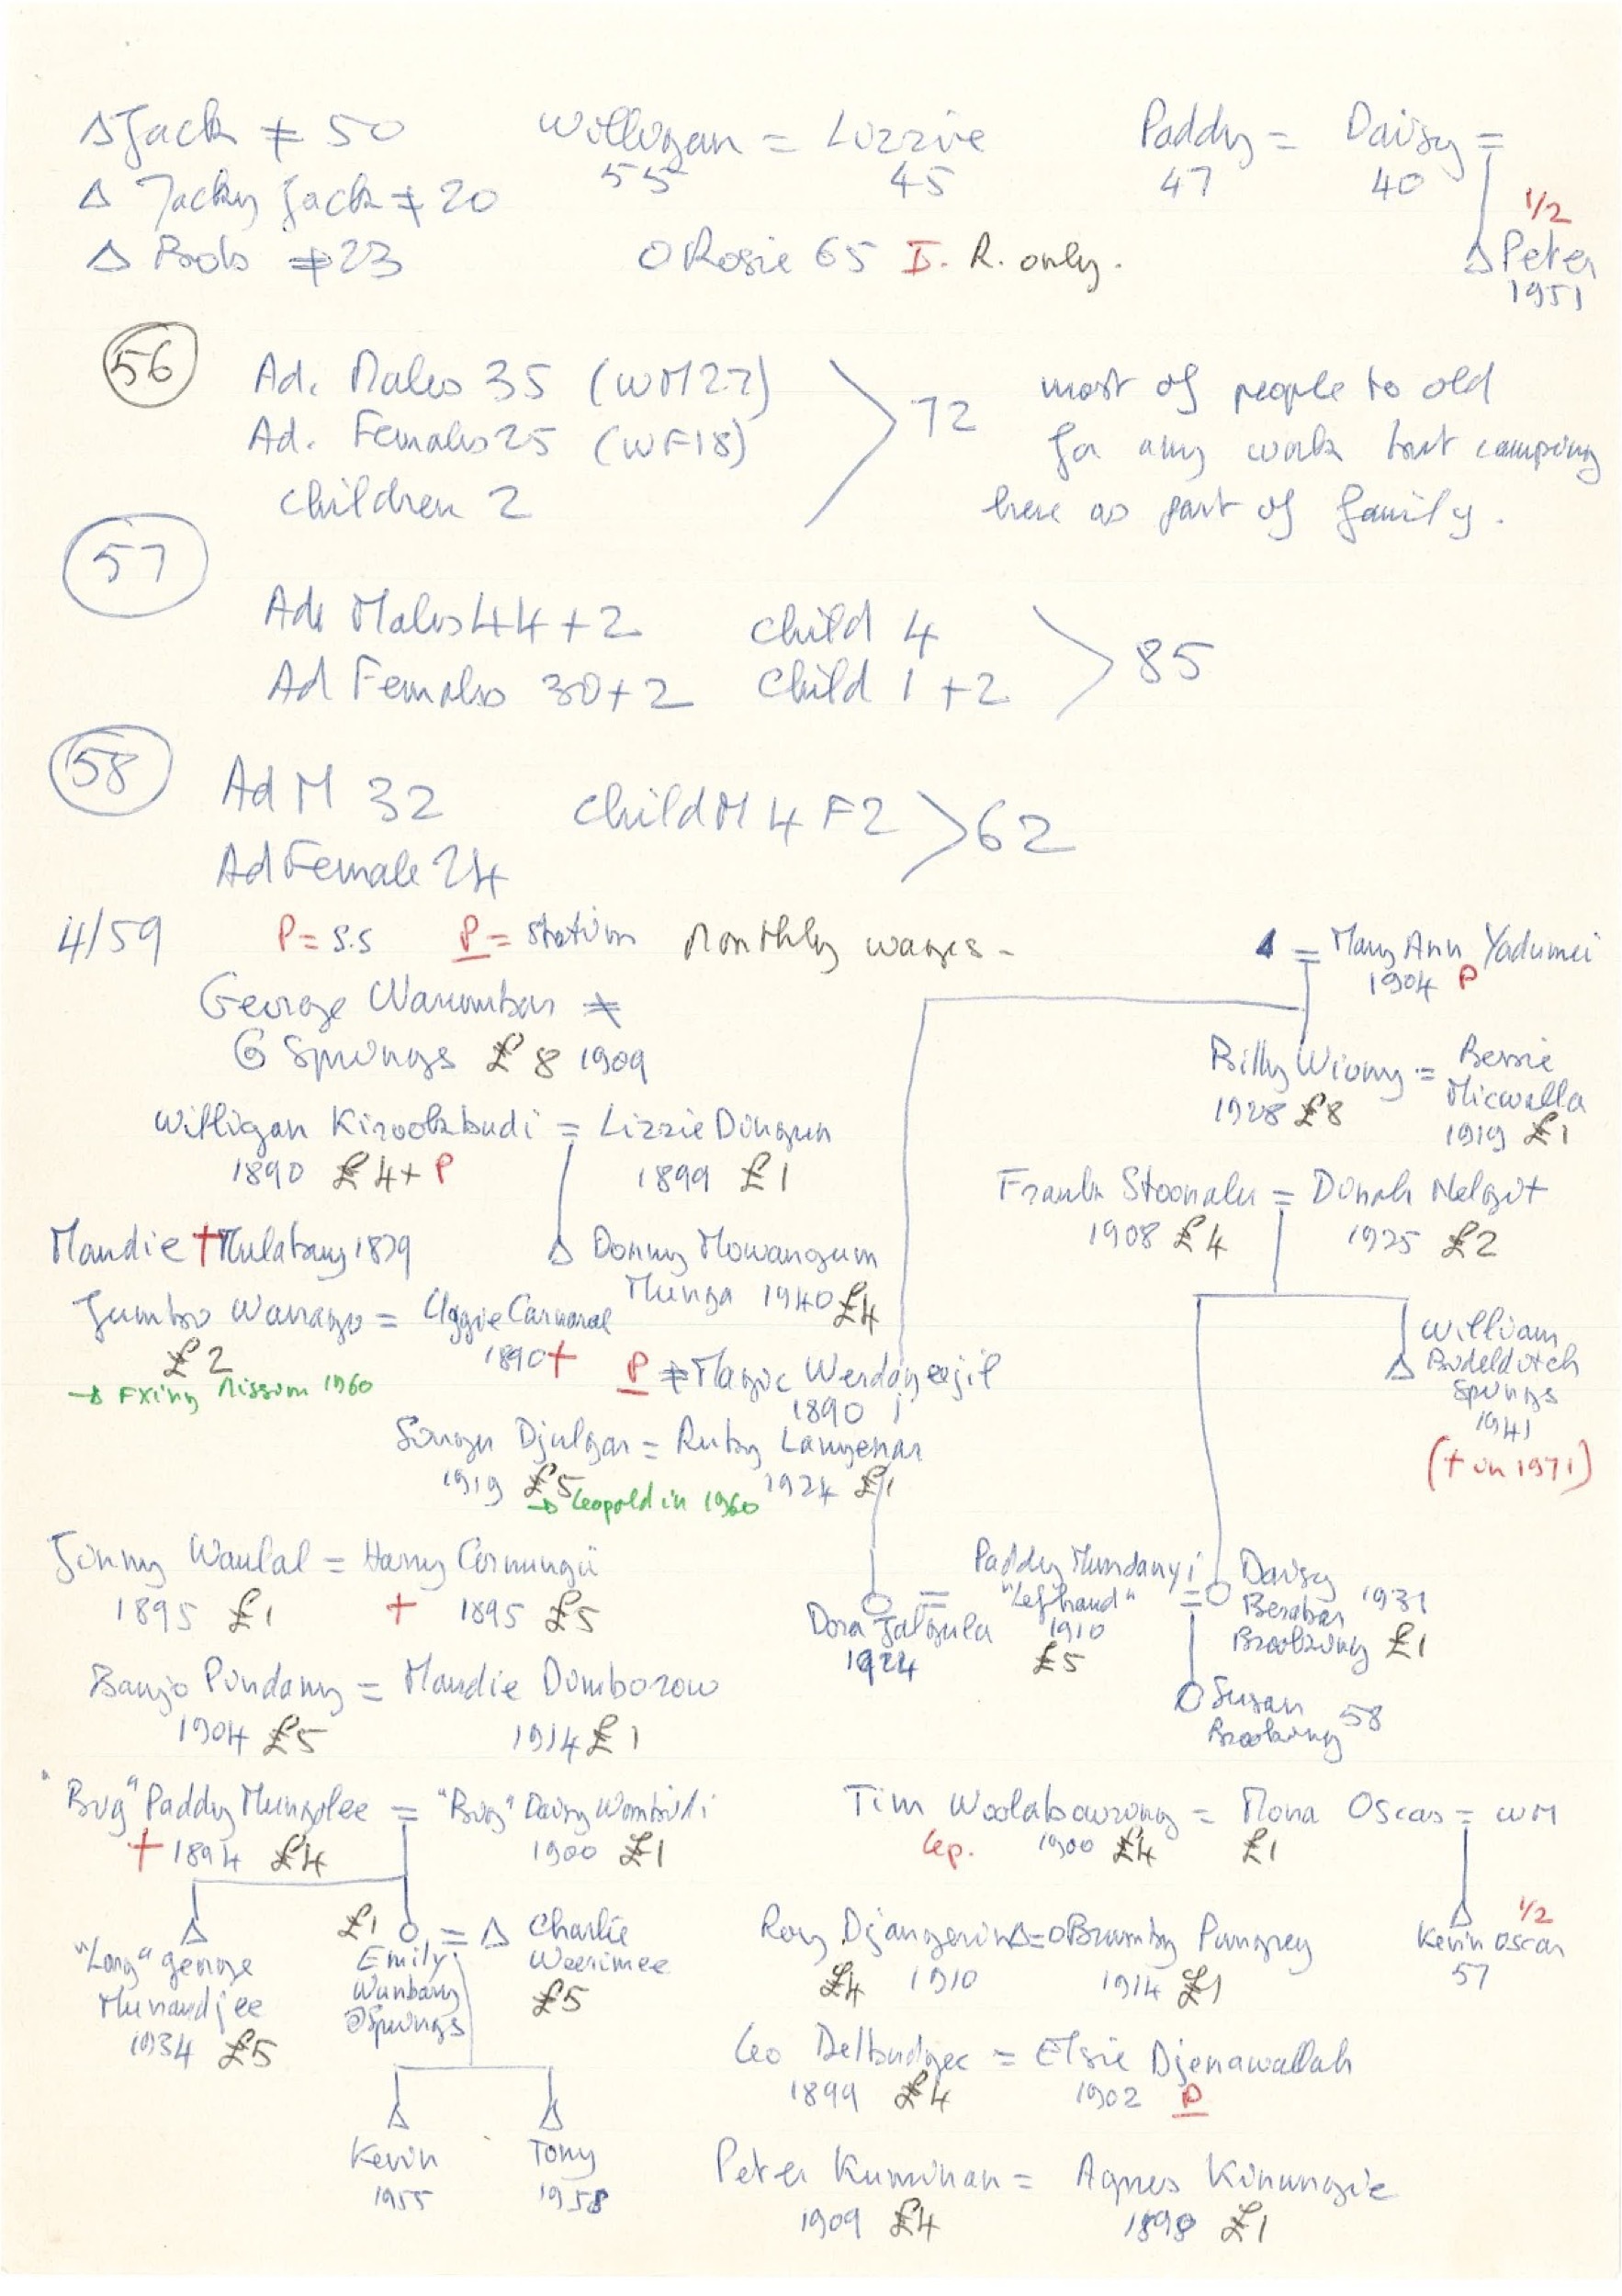 Δ Jack ≠ 50
Willigan = Lizzie
55 45
Paddy = Daisy =
47 40
Δ Jacky Jack ≠ 20
1/2
Δ Bob ≠ 23
O Rosie 65 I. R. only.
Δ Peter
1951
56
Ad. Males 35 (WM27)
Ad. Females 25 (WF18)
children 2
72
most of people to old
for any work but camping
here as part of family.
57
Ad Males 44 + 2 child 4
Ad Females 30 + 2 child 1 + 2
85
58
Ad M 32 child M 4 F2 > 62
Ad Female 24
4/59 P = S.S P = station Monthly wages -
Δ = Mary Ann Yadumei
1904 P
George Warumbar ≠
G Springs £8 1909
Billy Wiomy = Bessie
Micwalla
1928 £8
1919 £1
Willigan = Lizzie Dingun
1890 £4 + P 1899 £1
Δ Donny Mowangum
Munga 1940 £4
Frank Stoonaku = Dinah Nelgit
1908 £4 1925 £2
Δ William
Springs
1941
(† in 1971)
Maudie † Mulabany 1879
Jumbo = Carnaral
£2 1890 †
→ Fxing Mission 1960
P ≠ Magic
1890
Djulgar = Ruby Langenar
1919 £5 1924 £1
→ Leopold in 1960
Waulal = Harry
1895 £1 † 1895 £5
O Dora Jalgula
1924
= Paddy Mundanyi
"Lefhand"
1910
£5
= O Daisy
1931
£1
O Susan 58
Banjo Pindany = Maudie Domborow
1904 £5 1914 £1
"Big" Paddy Mungolee = "Big" Daisy
† 1894 £4 1900 £1
Δ
"Long" George
Munandjee
1934 £5
£1 O = Δ Charlie
Weerimee
£5
Emily
Wunbany
Springs
Δ Δ
Kevin Tony
1955 1958
Tim Woolabowrong = Mona Oscar = WM
Lep. 1900 £4 £1
1/2
Δ
Kevin Oscar
57
Roy Djangerin Δ = O Brumby Pungrey
£4 1910 1914 £1
Leo Delbudgee = Elsie Djenawallah
1899 £4 1902 P
Peter Kuminan = Agnes Kinungie
1909 £4 1898 £1